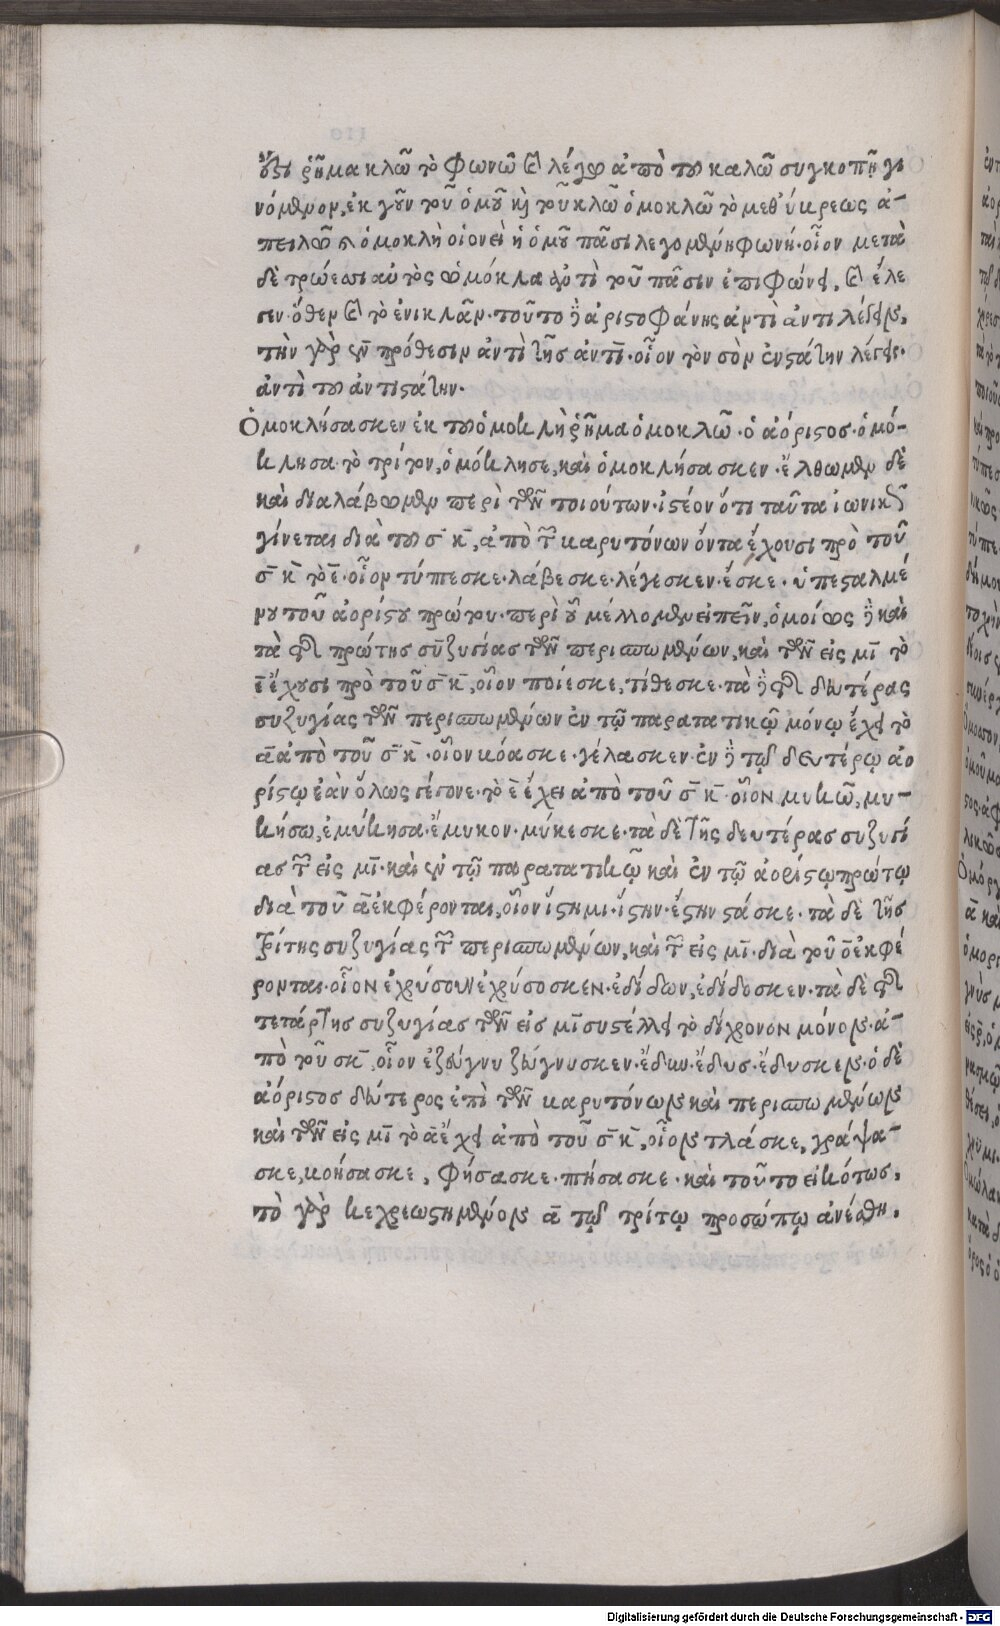 ἔστι ῥῆμα κλῶ τὸ φωνῶ καὶ λέγω ἀπὸ του καλῶ συγκοπῆ γι
νόμενον, ἐκ γοῦν τοῦ ὁμοῦ καὶ τοῦ κλῶ ὁμοκλῶ τὸ μεθ' ὕκρεως ἀ-
πειλῶ ὁμοκλὴ οἱονεὶ ἡ ὁμοῦ πᾶσι λεγομένη φωνή· οἷον μετὰ
δὲ τρώεσσι αὐτὸς ὡμόκλα ἀντὶ τοῦ πᾶσιν ἐπιφώνει, καὶ ἐλε
σεν· ὅθεν καὶ τὸ ἐνικλᾶν· τοῦτο δὲ ἀριστοφάνης ἀντὶ ἀντιλέγειν,
τὴν γὰρ ἐν πρόθεσιν ἀντὶ τῆς ἀντί· οἷον τὸν σὸν ἐνστάτην λέγει·
ἀντὶ του ἀντιστάτην·
Ὁμοκλήσασκεν ἐκ του ὁμοκλὴ ῥῆμα ὁμοκλῶ· ὁ ἀόριστος· ὁμό-
κλησα· τὸ τρίτον, ὁμόκλησε, καὶ ὁμοκλήσασκεν· ἔλθωμεν δὲ
καὶ διαλάβωμεν περὶ τῶν τοιούτων· ἰστέον ὅτι ταῦτα ἰωνικῶς
γίνεται διὰ του σ̄ κ̄, ἀπὸ τῶν βαρυτόνων ὄντα ἔχουσι πρὸ τοῦ
σ̄ κ̄ τὸ ε̄· οἷον τύπεσκε· λάβεσκε· λέγεσκεν· ἔσκε· ὑπεσταλμέ
νου τοῦ ἀορίστου πρώτου· περὶ οὗ μέλλομεν εἰπεῖν, ὁμοίως δὲ καὶ
τὰ τῆς πρώτης συζυγίας τῶν περισπωμένων, καὶ τῶν εἰς μῑ τὸ
ε̄ ἔχουσι πρὸ τοῦ σ̄ κ̄, οἷον ποίεσκε, τίθεσκε· τὰ δὲ τῆς δευτέρας
συζυγίας τῶν περισπωμένων ἐν τῷ παρατατικῷ μόνῳ ἔχει τὸ
ᾱ ἀπὸ τοῦ σ̄ κ̄· οἷον βόασκε· γέλασκεν· ἐν δὲ τῷ δευτέρῳ ἀο
ρίστῳ ἐὰν ὅλως γέγονε· τὸ ε̄ ἔχει ἀπὸ τοῦ σ̄ κ̄· οἷον μυκῶ, μυ-
κήσω, ἐμύκησα· ἔμυκον· μύκεσκε· τὰ δὲ τῆς δευτέρας συζυγί
ας τῶν εἰς μῑ· καὶ ἐν τῷ παρατατικῷ καὶ ἐν τῷ ἀορίστῳ πρώτῳ
διὰ τοῦ ᾱ ἐκφέρονται, οἷον ἵστημι· ἵστην· ἔστην στάσκε· τὰ δὲ τῆς
τρίτης συζυγίας τῶν περισπωμένων, καὶ τῶν εἰς μῑ· διὰ τοῦ ο̄ ἐκφέ
ρονται· οἷον ἐχρύσουν ἐχρύσοσκεν· ἐδίδων, ἐδίδοσκεν· τὰ δὲ τῆς
τετάρτης συζυγίας τῶν εἰς μῑ συστέλλει τὸ δίχρονον μόνον· ἀ-
πὸ τοῦ σκ̄, οἷον ἐζεύγνυ ζεύγνυσκεν· ἔδυν· ἔδυς· ἔδυσκεν· ὁ δὲ
ἀόριστος δεύτερος ἐπὶ τῶν βαρυτόνων καὶ περισπωμένων
καὶ τῶν εἰς μῑ τὸ ᾱ ἔχει ἀπὸ τοῦ σ̄ κ̄, οἷον τλάσκε, γράψα-
σκε, βοήσασκε, φήσασκε· πήσασκε· καὶ τοῦτο εἰκότως,
τὸ γὰρ κεχρεωστημένον ᾱ τῷ τρίτῳ προσώπῳ ἀνέῳθη.
Digitalisierung gefördert durch die Deutsche Forschungsgemeinschaft - DFG